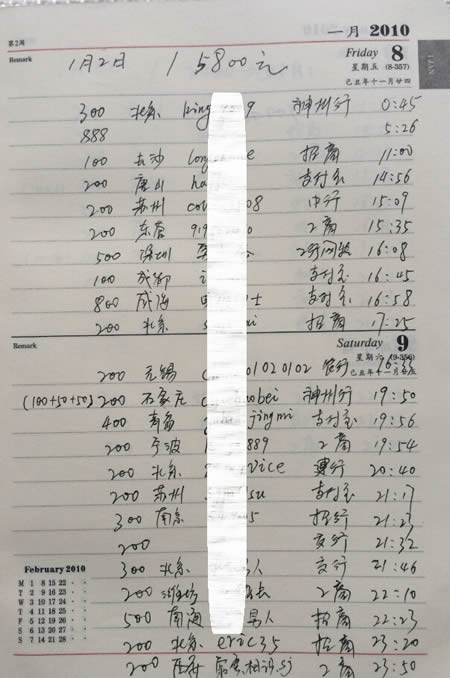 第2周
一月 2010
Remark
Friday 8
星期五 (8-357)
己丑年十一月廿四
JAN
1月2日 15800元
300 北京 king 9 神州行 0:45
888 5:26
100 长沙 long e 招商 11:00
200 唐山 ha 支付宝 14:56
200 苏州 co 08 中行 15:09
200 东营 919 0 工商 15:35
500 深圳 工行网银 16:08
100 成都 支付宝 16:45
800 威海 士 支付宝 16:58
200 北京 s i 招商 17:25
Remark
Saturday 9
星期六 (9-356)
己丑年十一月廿五
200 无锡 c 0102 0102 农行
(100+50+50) 200 石家庄 c bei 神州行 19:50
400 青岛 jingmi 支付宝 19:56
200 宁波 889 工商 19:54
200 北京 vice 建行 20:40
200 苏州 su 支付宝 21:17
300 南京 5 招行 21:23
200 交行 21:32
300 北京 人 交行 21:46
200 潍坊 长 工商 22:10
500 南海 男人 招商 22:23
200 北京 eric35 招商 23:20
200 西安 工商 23:50
February 2010
M 1 8 15 22 · ·
T 2 9 16 23 · ·
W 3 10 17 24 · ·
T 4 11 18 25 · ·
F 5 12 19 26 · ·
S 6 13 20 27 · ·
S 7 14 21 28 · ·